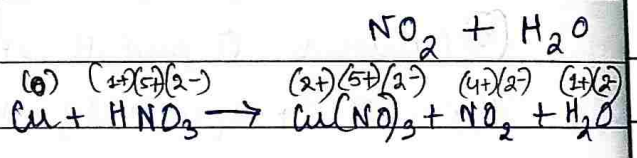 NO₂ + H₂O
(0) (1+)(5+)(2-) (2+)(5+)(2-) (4+)(2-) (1+)(2-)
Cu + HNO₃ → Cu(NO)₃ + NO₂ + H₂O